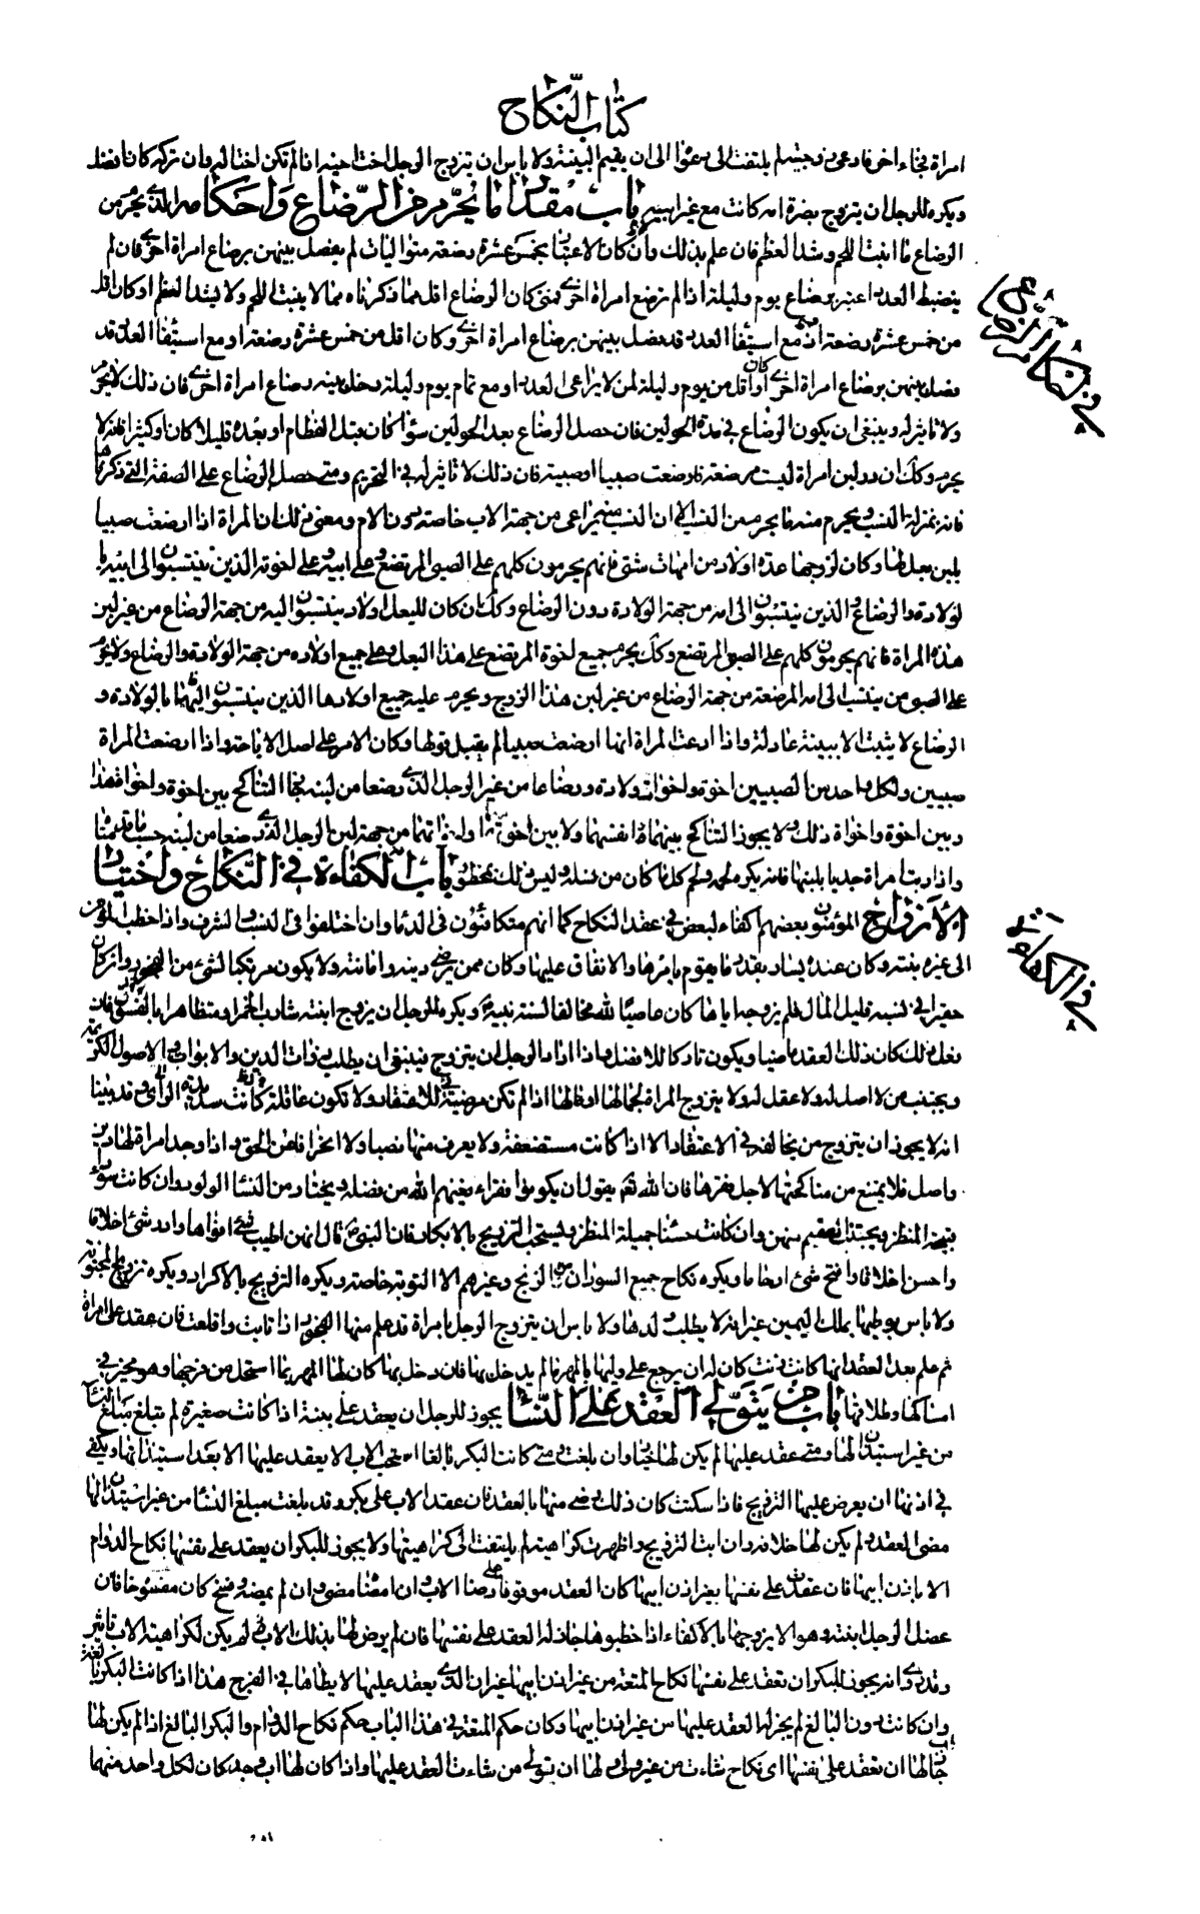 كتاب النكاح
امراة فجاء اخر فادعى زوجيتها لم يلتفت الى دعواه الى ان يقيم البينة ولا باس ان يتزوج الرجل اخت اخيه اذا لم تكن اختا له وان تركه كان افضل
ويكره للرجل ان يتزوج بضرة امه كانت مع غير ابيه باب مقدار ما يحرم من الرضاع واحكامه الذي يحرم من
الرضاع ما انبت اللحم وشد العظم فان علم بذلك والا كان الاعتبار بخمس عشرة رضعة متواليات لم يفصل بينهن برضاع امراة اخرى فان لم
ينضبط العدد اعتبر برضاع يوم وليلة اذا لم ترضع امراة اخرى فمتى كان الرضاع اقل مما ذكرناه مما لا ينبت اللحم ولا يشد العظم او كان اقل
من خمس عشرة رضعة او مع استيفاء العدد قد فصل بينهن برضاع امراة اخرى وكان اقل من خمس عشرة رضعة او مع استيفاء العدد قد
فصل بينهن برضاع امراة اخرى او كان اقل من يوم وليلة لمن لا يراعى العدد او مع تمام يوم وليلة دخل بينه رضاع امراة اخرى فان ذلك لا يحرم
ولا تاثير له وينبغى ان يكون الرضاع في مدة الحولين فان حصل الرضاع بعد الحولين سواء كان قبل الفطام او بعده قليلا كان او كثيرا فانه لا
يحرم وكذلك ان در لبن امراة ليست مرضعة فارضعت صبيا او صبية فان ذلك لا تاثير له في التحريم ومتى حصل الرضاع على الصفة التي ذكرناها
فانه بمنزلة النسب ويحرم منه ما يحرم من النسب الا ان النسب منه يراعى من جهة الاب خاصة دون الام ومعنى ذلك ان المراة اذا ارضعت صبيا
بلبن بعل لها وكان لزوجها عدة اولاد من امهات شتى فانهم يحرمون كلهم على الصبي المرتضع وعلى ابيه وعلى اخوته الذين ينتسبون الى ابيه با
لولادة والرضاع والذين ينتسبون الى امه من جهة الولادة دون الرضاع وكذلك ان كان للبعل اولاد ينتسبون اليه من جهة الرضاع من غير لبن
هذه المراة فانهم يحرمون كلهم على الصبي المرتضع وكذلك يحرم جميع اخوة المرتضع على هذا البعل وعلى جميع اولاده من جهة الولادة والرضاع ولا يحرم
على الصبي من ينتسب الى امه المرضعة من جهة الرضاع من غير لبن هذا الزوج ويحرم عليه جميع اولادها الذين ينتسبون اليها بالولادة و
الرضاع لا يثبت الا ببينة عادلة واذا ادعت المراة انها ارضعت صبيا لم يقبل قولها وكان الامر على اصل الاباحة واذا ارضعت المراة
صبيين ولكل واحد من الصبيين اخوة واخوات ولادة ورضاعا من غير الرجل الذي رضعا من لبنه جاز التناكح بين اخوة واخوات هذا
وبين اخوة واخوات ذلك ولا يجوز التناكح بينهما انفسهما ولا بين اخوتهما واخواتهما من جهة لبن الرجل الذي رضعا من لبنه حسب ما قدمناه
واذا ربت امراة جديا بلبنها فانه يكره لحمه ولحم كل ما كان من نسله وليس ذلك بمحظور باب الكفاءة في النكاح واختيار
الازواج المؤمنون بعضهم اكفاء لبعض في عقد النكاح كما انهم متكافئون في الدماء وان اختلفوا في النسب والشرف واذا خطب المؤمن
الى غيره بنته وكان عنده يسار بقدر ما يقوم بامرها والانفاق عليها وكان ممن يرضى دينه وامانته ولا يكون مرتكبا لشئ من الفجور وان كان
حقيرا في نسبه قليل المال فلم يزوجه اياها كان عاصيا لله مخالفا لسنة نبيه ص ويكره للرجل ان يزوج ابنته شارب الخمر او متظاهرا بالفسوق فان
فعل ذلك كان ذلك العقد ماضيا ويكون تاركا للافضل واذا اراد الرجل ان يتزوج فينبغى ان يطلب ذوات الدين والابوات والاصول الكريمة
ويجتنب من لا اصل له ولا عقل له ولا يتزوج المراة لجمالها او مالها اذا لم تكن مرضية في الاعتقاد ولا تكون عاقلة سديدة الراى وقد بينا
انه لا يجوز ان يتزوج من يخالفه في الاعتقاد الا اذا كانت مستضعفة ولا يعرف منها نصبا ولا انحرافا عن الحق واذا وجد امراة لها دين
واصل فلا يمتنع من مناكحتها لاجل فقرها فان الله تعالى يقول ان يكونوا فقراء يغنهم الله من فضله ويختار من النساء الولود وان كانت سوداء
قبيحة المنظر ويجتنب العقيم منهن وان كانت حسناء جميلة المنظر ويستحب التزويج بالابكار فان النبي ص قال انهن اطيب شئ افواها وادر شئ اخلافا
واحسن اخلاقا وافتح شئ ارحاما ويكره نكاح جميع السودان من الزنج وغيرهم الا النوبة خاصة ويكره التزويج بالاكراد ويكره تزويج المجنونة
ولا باس بوطيها بملك اليمين غير انه لا يطلب ولدها ولا باس ان يتزوج الرجل بامراة قد علم منها الفجور اذا تابت واقلعت فان عقد على امراة
ثم علم بعد العقد انها كانت زنت كان له ان يرجع على وليها بالمهر ما لم يدخل بها فان دخل بها كان لها المهر بما استحل من فرجها وهو مخير في
امساكها وطلاقها باب من يتولى العقد على النساء يجوز للرجل ان يعقد على بنته اذا كانت صغيرة لم تبلغ مبلغ النساء
من غير استيذان لها ومتى عقد عليها لم يكن لها خيار وان بلغت ومتى كانت البكر بالغا استحب للاب الا يعقد عليها الا بعد استيذانها ويكفى
في اذنها ان يعرض عليها التزويج فاذا سكتت كان ذلك رضى منها بالعقد فان عقد الاب على بكر قد بلغت مبلغ النساء من غير استيذان لها
مضى العقد ولم يكن لها خلافه وان ابت التزويج واظهرت كراهيته لم يلتفت الى كراهيتها ولا يجوز للبكر ان يعقد على نفسها نكاح الدوام
الا باذن ابيها فان عقدت على نفسها بغير اذن ابيها كان العقد موقوفا على رضا الاب فان امضاه مضى وان لم يمضه وفسخ كان مفسوخا فان
عضل الرجل ابنته وهو الا يزوجها بالاكفاء اذا خطبوها جاز لها العقد على نفسها فان لم يرض لها بذلك الاب لم يكن لكراهية الاب تاثير
وقد روى انه يجوز للبكر ان تعقد على نفسها نكاح المتعة من غير اذن ابيها غير ان الذي يعقد عليها لا يطاها في الفرج هذا اذا كانت البكر بالغة
وان كانت دون البالغ لم يجز لها العقد عليها من غير اذن ابيها وكان حكم المتعة في هذا الباب حكم نكاح الدوام والبكر البالغ اذا لم يكن لها
اب جاز لها ان تعقد على نفسها اى نكاح شاءت من غير ولى ولها ان تولى من شاءت العقد عليها واذا كان لها اب وجد كان لكل واحد منهما
في الكفاءة